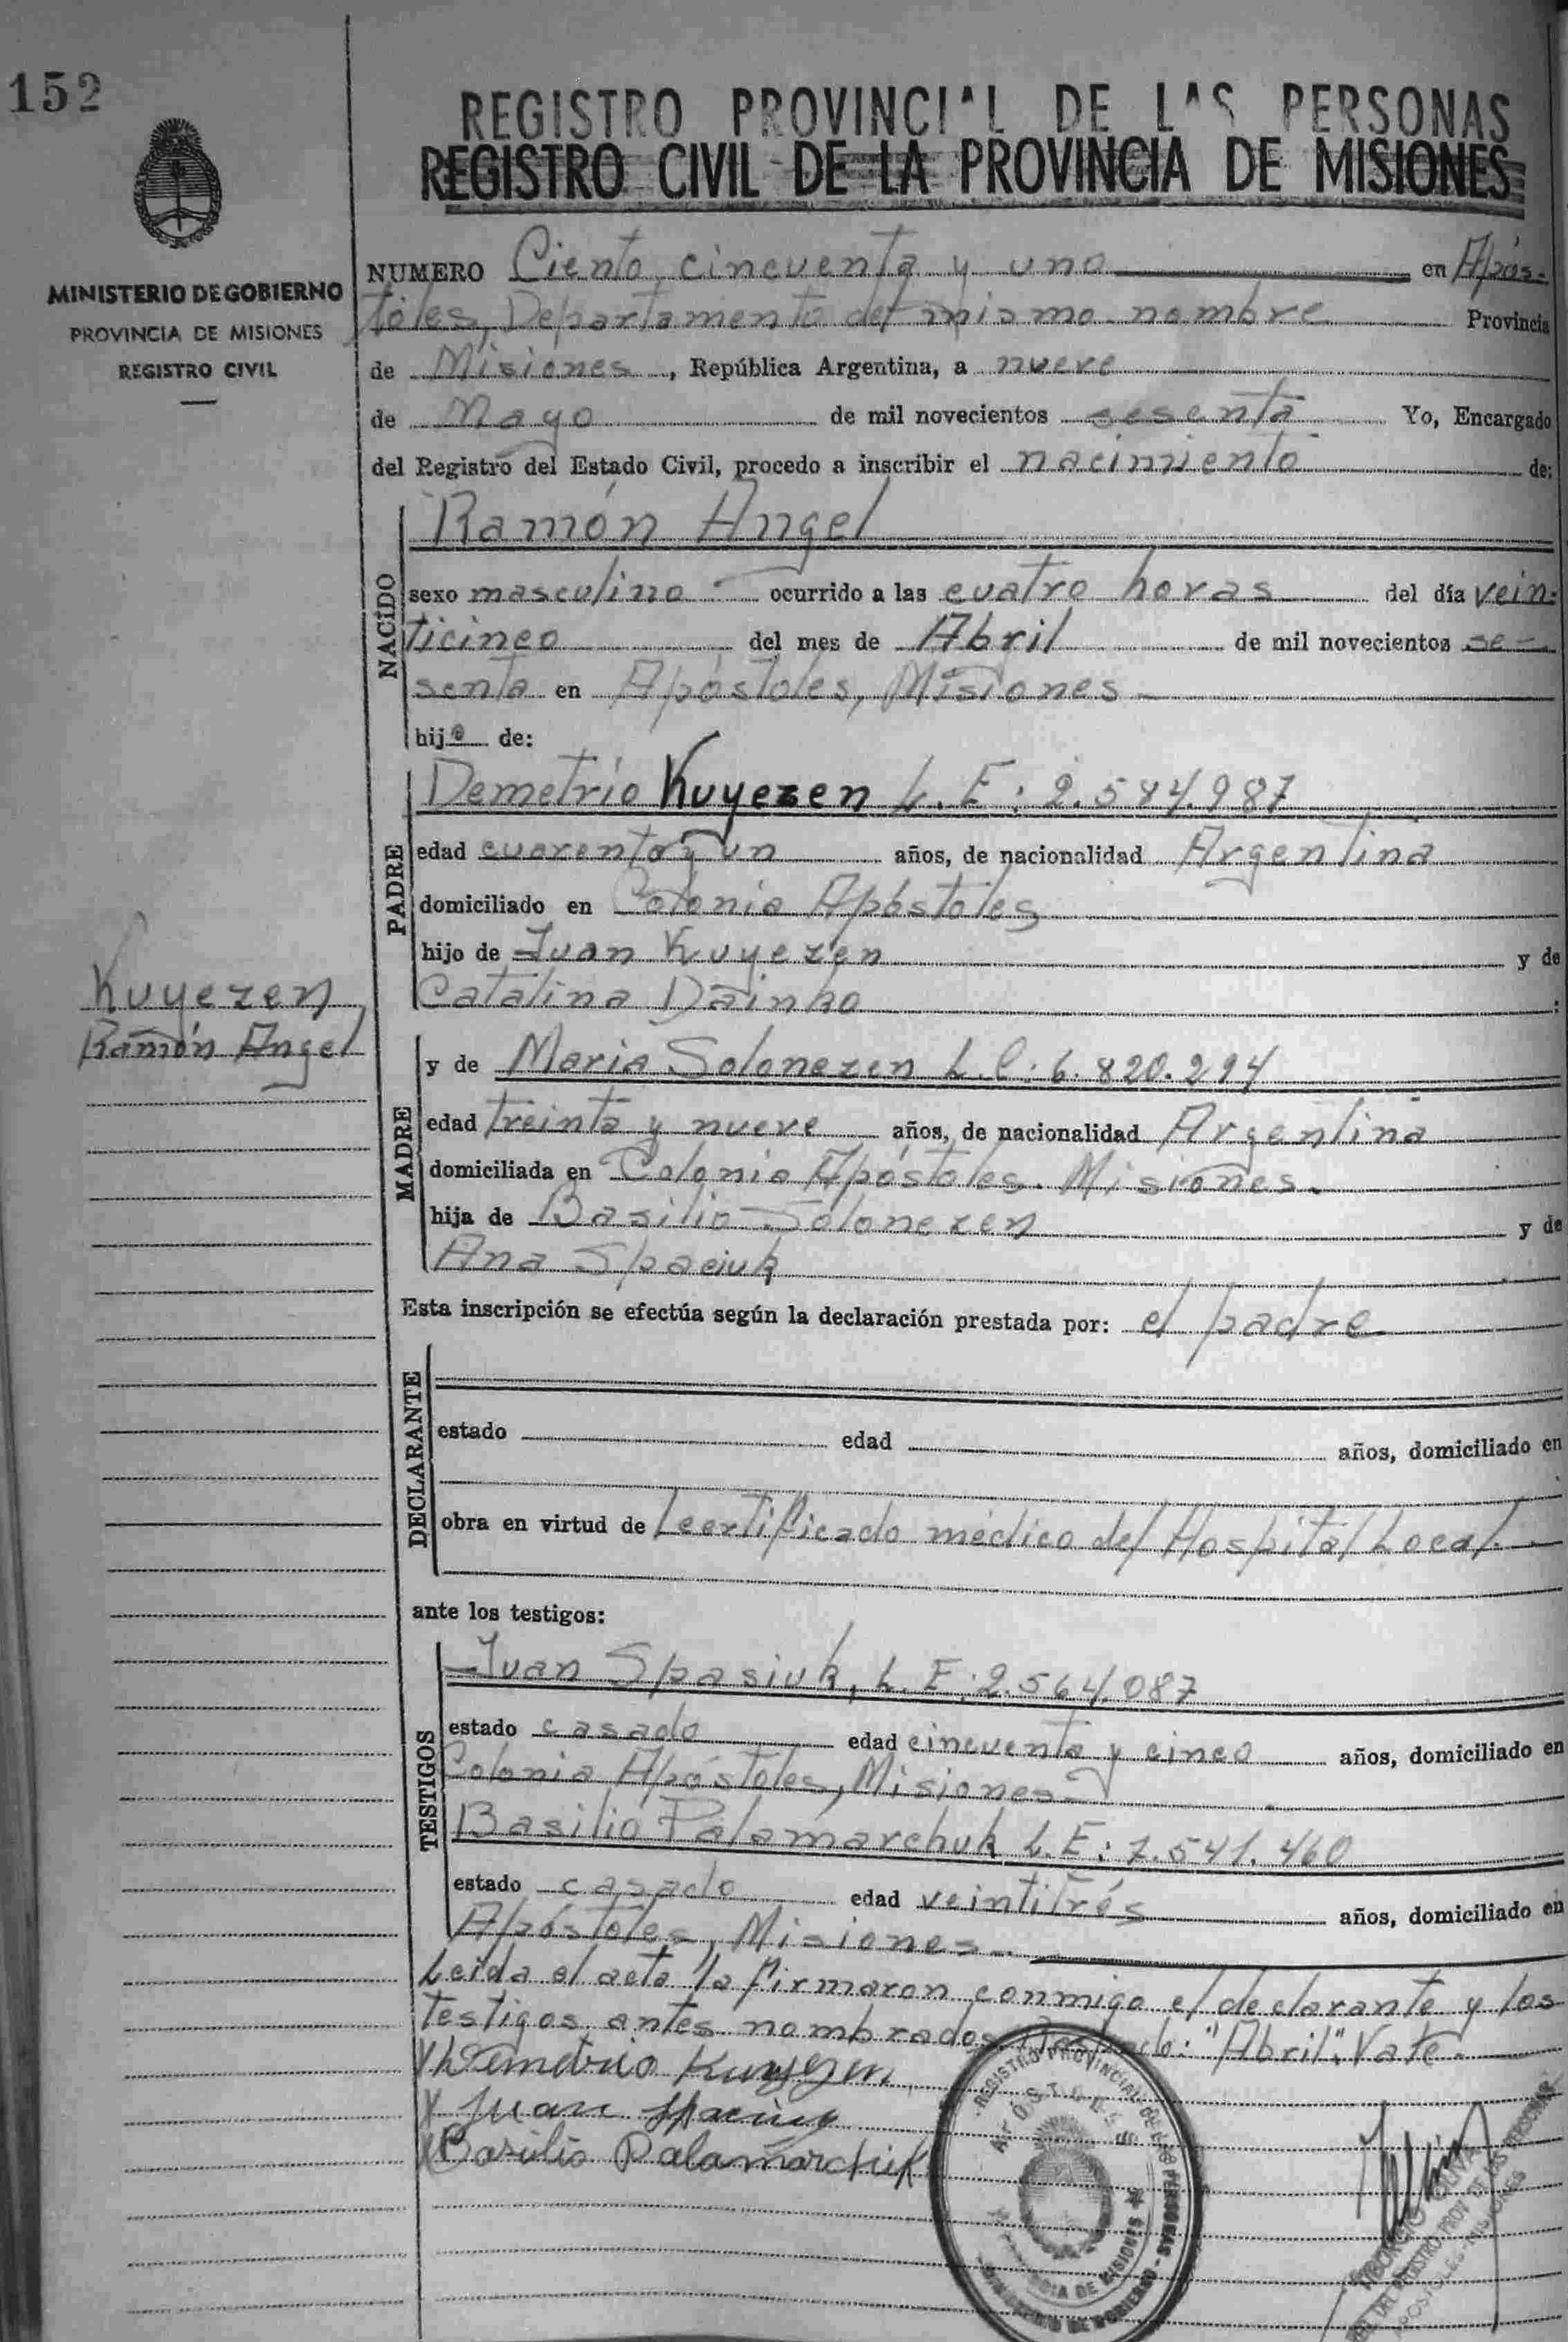 152
REGISTRO PROVINCIAL DE LAS PERSONAS
REGISTRO CIVIL DE LA PROVINCIA DE MISIONES
MINISTERIO DE GOBIERNO
PROVINCIA DE MISIONES
REGISTRO CIVIL
NUMERO Ciento cincuenta y uno en Após-
toles, Departamento del mismo nombre Provincia
de Misiones, República Argentina, a nueve
de Mayo de mil novecientos sesenta Yo, Encargado
del Registro del Estado Civil, procedo a inscribir el nacimiento de:
NACIDO
Ramón Angel
sexo masculino ocurrido a las cuatro horas del día vein-
ticinco del mes de Abril de mil novecientos se-
senta en Apóstoles, Misiones
hijo de:
PADRE
Demetrio Kuyezen L. E: 2.584.987
edad cuarenta y un años, de nacionalidad Argentina
domiciliado en Colonia Apóstoles
hijo de Juan Kuyezen y de
Catalina Dainko
Kuyezen
Ramón Angel
MADRE
y de Maria Solonezen L.C: 6.820.294
edad treinta y nueve años, de nacionalidad Argentina
domiciliada en Colonia Apóstoles. Misiones.
hija de Basilio Solonezen y de
Ana Spaciuk
Esta inscripción se efectúa según la declaración prestada por: el padre
DECLARANTE
estado edad años, domiciliado en
obra en virtud de Lcertificado médico del Hospital Local.
ante los testigos:
TESTIGOS
Juan Spasiuk, L. E: 2.564.087
estado casado edad cincuenta y cinco años, domiciliado en
Colonia Apóstoles, Misiones-
Basilio Palamarchuk L.E: 7.541.460
estado casado edad veintitrés años, domiciliado en
Apóstoles, Misiones-
Leída el acta la firmaron conmigo el declarante y los
testigos antes nombrados. "Abril". Vale.
Demetrio Kuyezen
Juan Spaciuk
Basilio Palamarchuk
REGISTRO PROVINCIAL DE LAS PERSONAS
APOSTOLES
MINISTERIO DE GOBIERNO
PROVINCIA DE MISIONES
REGISTRO PROV. DE LAS PERSONAS
APOSTOLES - MISIONES